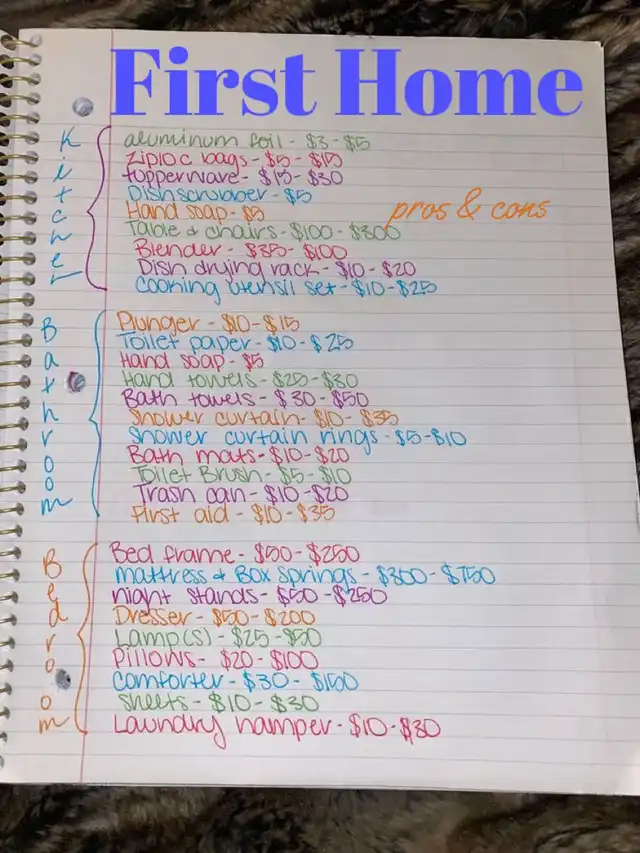 First Home
pros & cons
Kitchen
aluminum foil - $3 - $5
Ziploc bags - $5 - $15
tupperware - $15 - $30
Dish scrubber - $5
Hand soap - $5
Table & chairs - $100 - $300
Blender - $35 - $100
Dish drying rack - $10 - $20
Cooking utensil set - $10 - $25
Bathroom
Plunger - $10 - $15
Toilet paper - $10 - $25
Hand soap - $5
Hand towels - $25 - $30
Bath towels - $30 - $50
Shower curtain - $10 - $35
Shower curtain rings - $5 - $10
Bath mats - $10 - $20
Toilet Brush - $5 - $10
Trash can - $10 - $20
First aid - $10 - $35
Bedroom
Bed frame - $50 - $250
mattress & Box springs - $300 - $750
night stands - $50 - $250
Dresser - $50 - $200
Lamp(s) - $25 - $50
Pillows - $20 - $100
Comforter - $30 - $150
Sheets - $10 - $30
Laundry hamper - $10 - $30